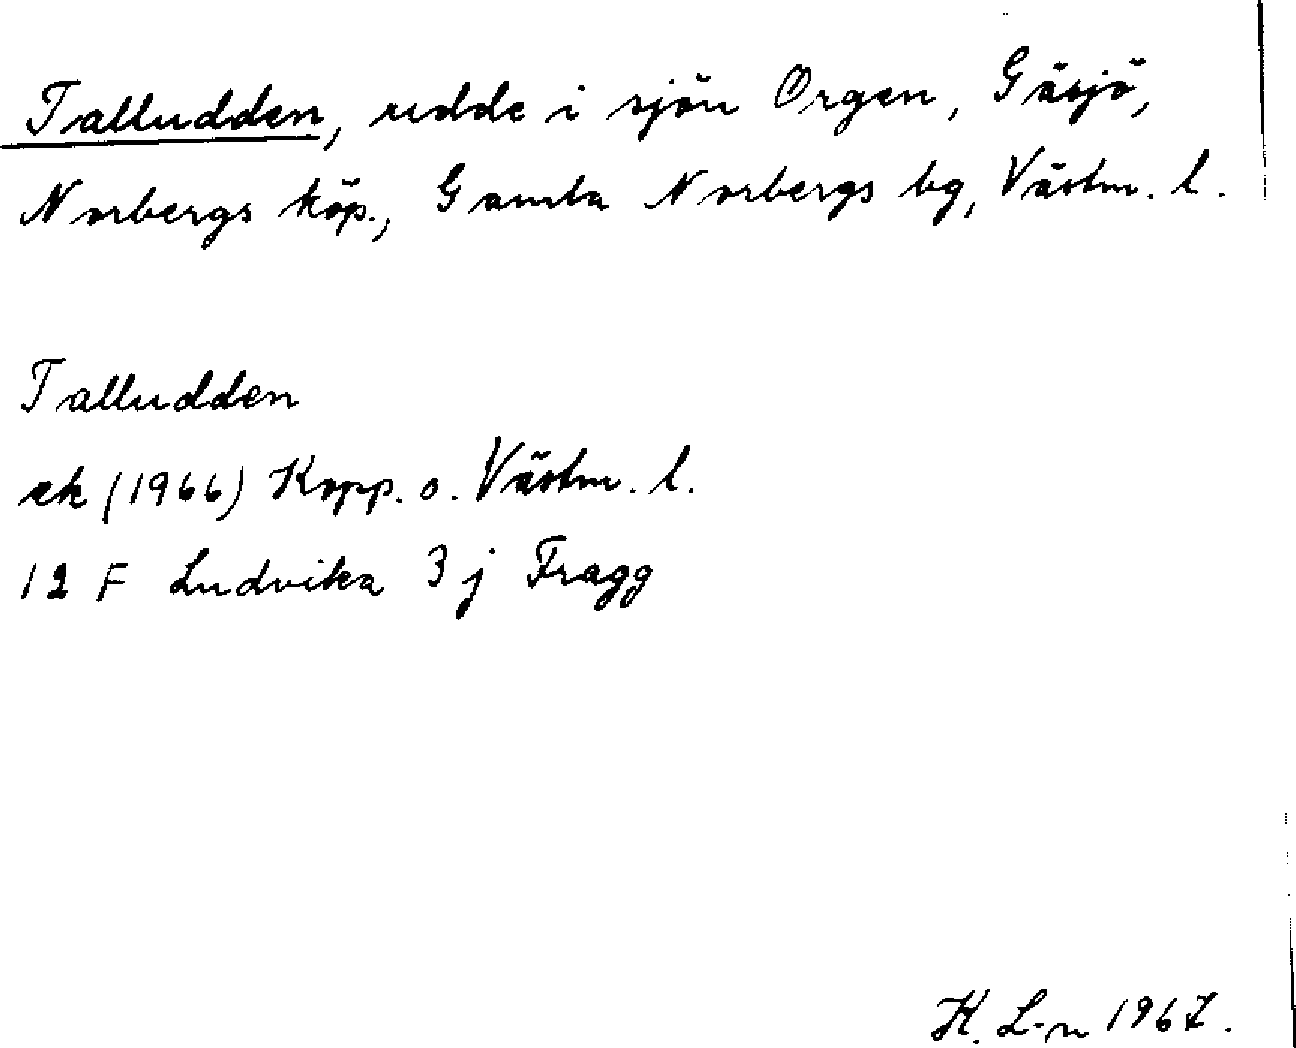 Talludden, udde i sjön Orgen, Gäsjö,
Norbergs köp., Gamla Norbergs bg, Västm. l.
Talludden
ek (1966) Kopp. o. Västm. l.
12 F Ludvika 3 j Fragg
K. L-n 1967.